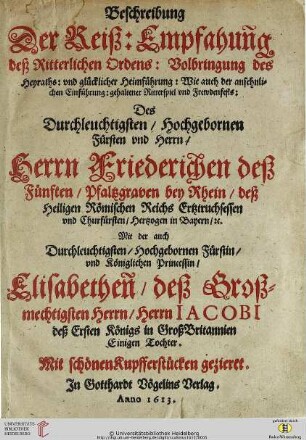 Beschreibung
Der Reiß: Empfahung̃
deß Ritterlichen Ordens: Volbringung des
Heyraths: und glücklicher Heimführung: Wie auch der ansehnli-
chen Einführung: gehaltener Ritterspiel und Frewdenfests:
Des
Durchleuchtigsten / Hochgebornen
Fürsten und Herrn /
Herrn Friederichen deß
Fünften / Pfaltzgraven bey Rhein / deß
Heiligen Römischen Reichs Ertztruchsessen
und Churfürsten / Hertzogen in Bayern / ꝛc.
Mit der auch
Durchleuchtigsten / Hochgebornen Fürstin /
und Königlichen Princessin /
Elisabethen̄ / deß Groß-
mechtigsten Herrn / Herrn IACOBI
deß Ersten Königs in GroßBritannien
Einigen Tochter.
Mit schönen Kupfferstücken gezieret.
In Gotthardt Vögelins Verlag.
Anno 1613.
UNIVERSITÄTS-
BIBLIOTHEK
HEIDELBERG
© Universitätsbibliothek Heidelberg